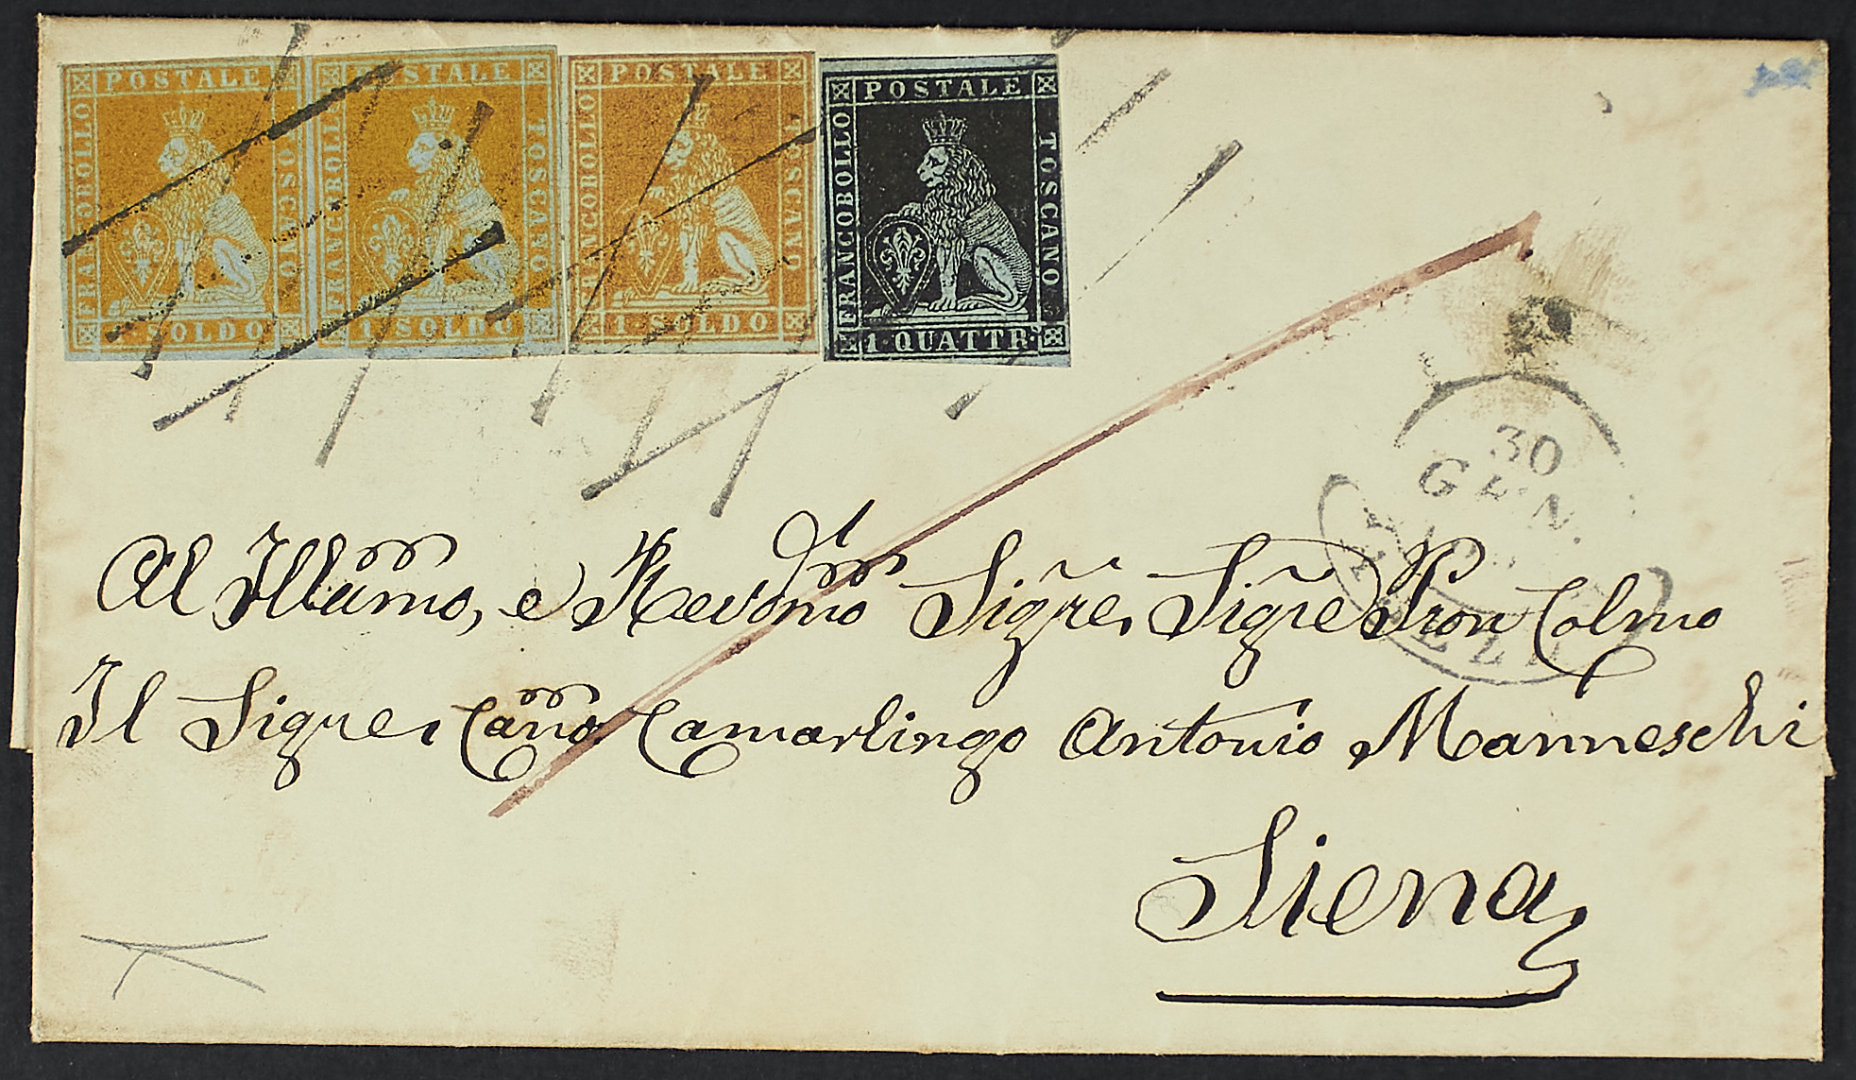 FRANCOBOLLO POSTALE TOSCANO
1 SOLDO
FRANCOBOLLO POSTALE TOSCANO
1 SOLDO
FRANCOBOLLO POSTALE TOSCANO
1 SOLDO
FRANCOBOLLO POSTALE TOSCANO
1 QUATTR.
30
GEN.
Al Illmo, e Revdmo Sigre, Sigre Pron Colmo
Il Sigre Cano Camarlingo Antonio Manneschi
Siena